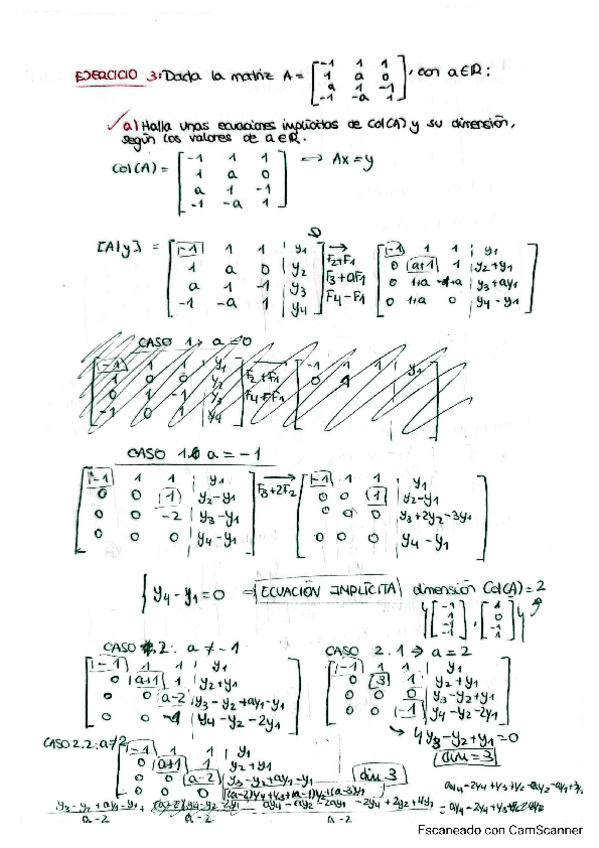 EJERCICIO 3: Dada la matriz A = [-1 1 1; 1 a 0; a 1 -1; -1 -a 1], con a∈ℝ:
a) Halla unas ecuaciones implícitas de Col(A) y su dimensión,
según los valores de a∈ℝ.
Col(A) = [-1 1 1; 1 a 0; a 1 -1; -1 -a 1] → Ax = y
[A|y] = [-1 1 1 | y1; 1 a 0 | y2; a 1 -1 | y3; -1 -a 1 | y4] → F2+F1 F3+aF1 F4-F1 [-1 1 1 | y1; 0 a+1 1 | y2+y1; 0 1+a -1+a | y3+ay1; 0 1+a 0 | y4-y1]
CASO 1 → a = 0
CASO 1. a = -1
[-1 1 1 | y1; 0 0 1 | y2-y1; 0 0 -2 | y3-y1; 0 0 0 | y4-y1] → F3+2F2 [-1 1 1 | y1; 0 0 1 | y2-y1; 0 0 0 | y3+2y2-3y1; 0 0 0 | y4-y1]
{ y4-y1=0 → ECUACIÓN IMPLÍCITA dimensión Col(A)=2
{[-1 1 -1 -1], [1 0 -1 1]}
CASO 2: a ≠ -1
[-1 1 1 | y1; 0 a+1 1 | y2+y1; 0 0 a-2 | y3-y2+ay1-y1; 0 0 -1 | y4-y2-2y1]
CASO 2.1 ⇒ a = 2
[-1 1 1 | y1; 0 3 1 | y2+y1; 0 0 0 | y3-y2+y1; 0 0 -1 | y4-y2-2y1]
→ { y3-y2+y1=0
dim = 3
CASO 2.2: a≠2
[-1 1 1 | y1; 0 a+1 1 | y2+y1; 0 0 a-2 | y3-y2+ay1-y1; 0 0 0
dim 3
Escaneado con CamScanner